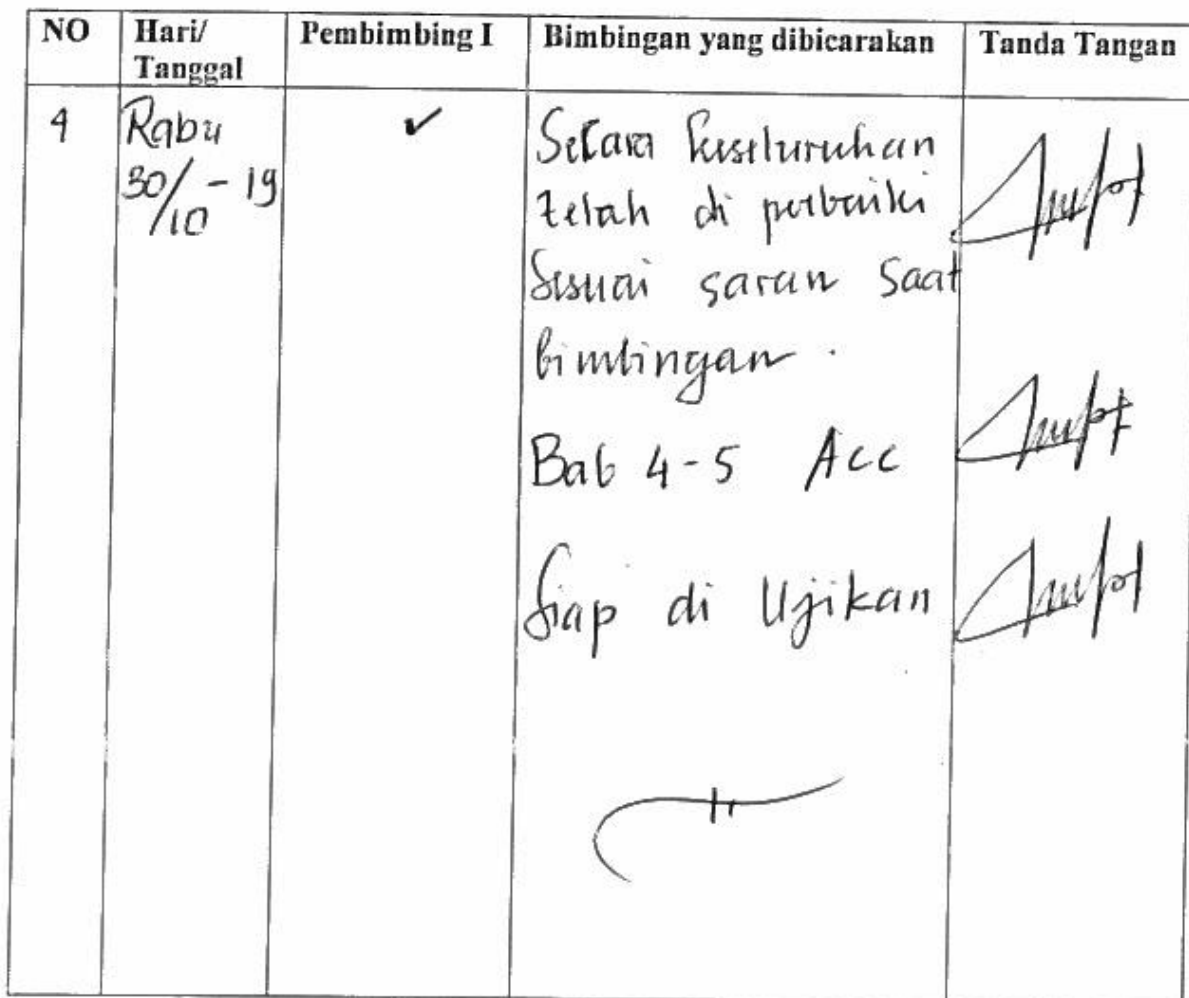 NO Hari/ Pembimbing I Bimbingan yang dibicarakan Tanda Tangan
Tanggal
4 Rabu ✓ Secara keseluruhan
30/10 - 19 telah di perbaiki
Sesuai saran saat
bimbingan.
Bab 4-5 Acc
Siap di Ujikan